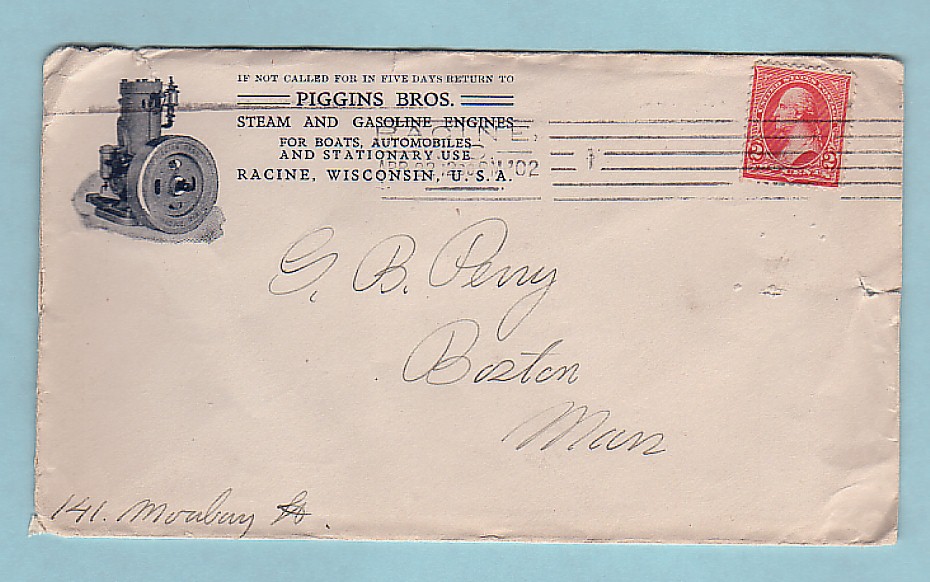 IF NOT CALLED FOR IN FIVE DAYS RETURN TO
PIGGINS BROS.
STEAM AND GASOLINE ENGINES
FOR BOATS, AUTOMOBILES
AND STATIONARY USE
RACINE, WISCONSIN, U.S.A.
RACINE,
APR 23 '02
2 2
G. B. Perry
Boston
Mass
141. St.